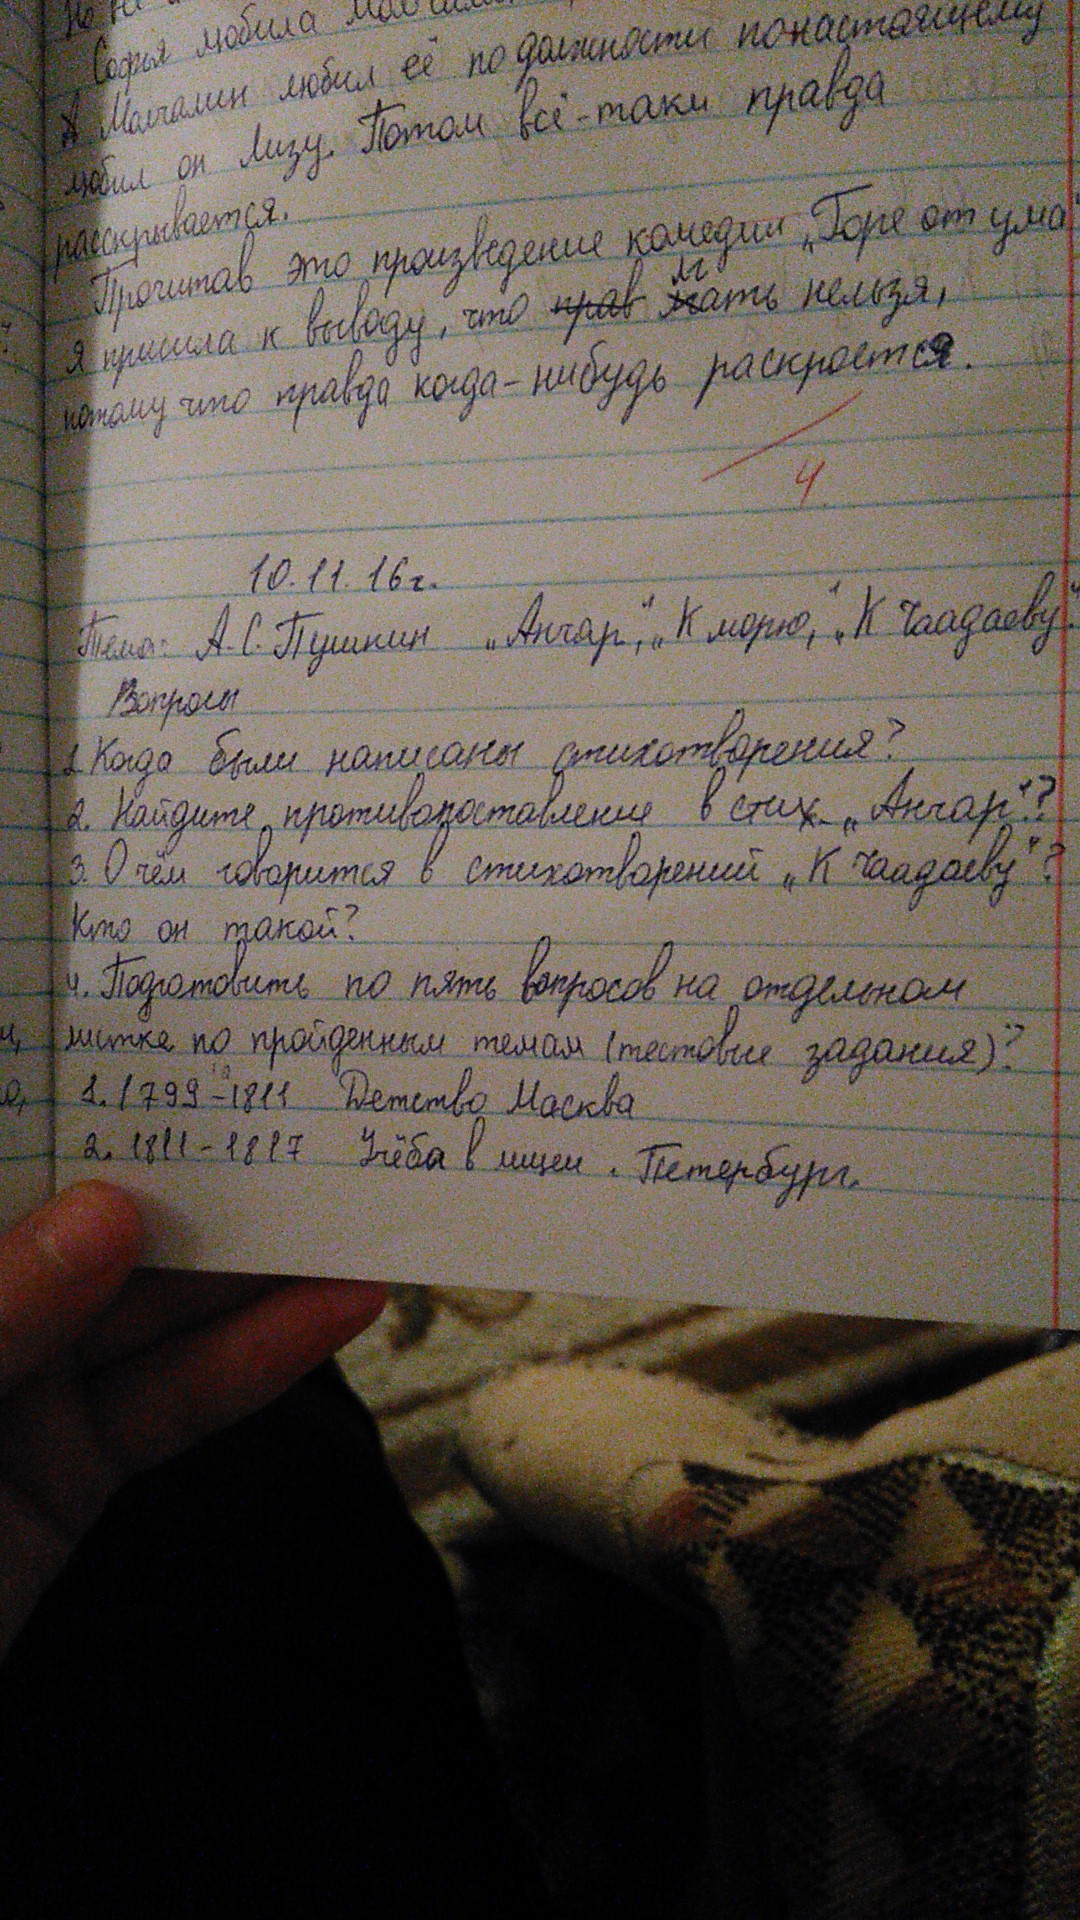 Но не
Софья любила
А Молчалин любил её по должности понастоящему
любил он Лизу. Потом всё-таки правда
расскрывается.
Прочитав это произведение комедии „Горе от ума"
я пришла к выводу, что прав лгать нельзя,
потому что правда когда-нибудь раскроется.
4
10.11.16г.
Тема: А.С.Пушкин „Анчар", „К морю", „К Чаадаеву".
Вопросы
1. Когда были написаны стихотворения?
2. Найдите противопоставление в стих. „Анчар"?
3. О чём говорится в стихотворений „К Чаадаеву"?
Кто он такой?
4. Подготовить по пять вопросов на отдельном
листке по пройденным темам (тестовые задания)?
1. 1799-1811 Детство Москва
2. 1811-1817 Учёба в лицеи. Петербург.